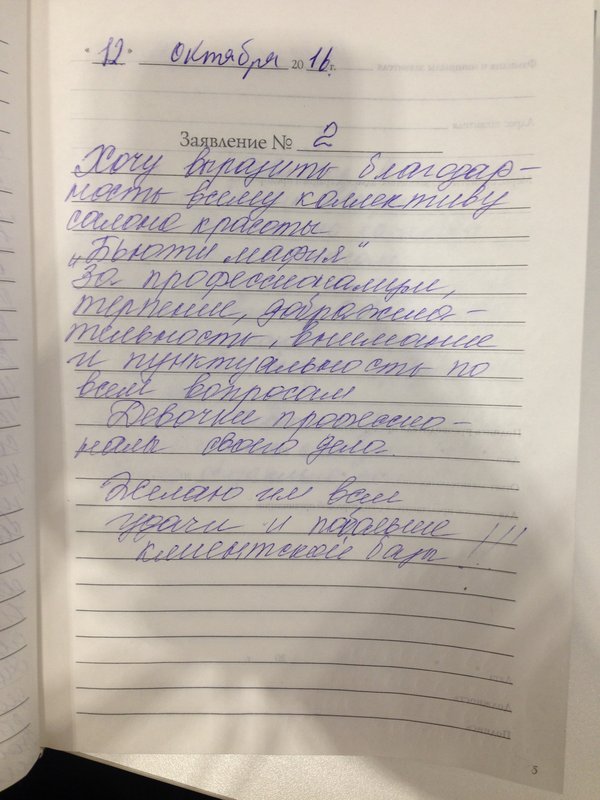 "12" октября 2016 г.
Заявление № 2
Хочу выразить благодар-
ность всему коллективу
салона красоты
„Бьюти мафия"
За профессионализм,
терпение, доброжела-
тельность, внимание
и пунктуальность по
всем вопросам
Девочки професcио-
налы своего дела
Желаю им всем
удачи и побольше
клиентской базы!!!
5